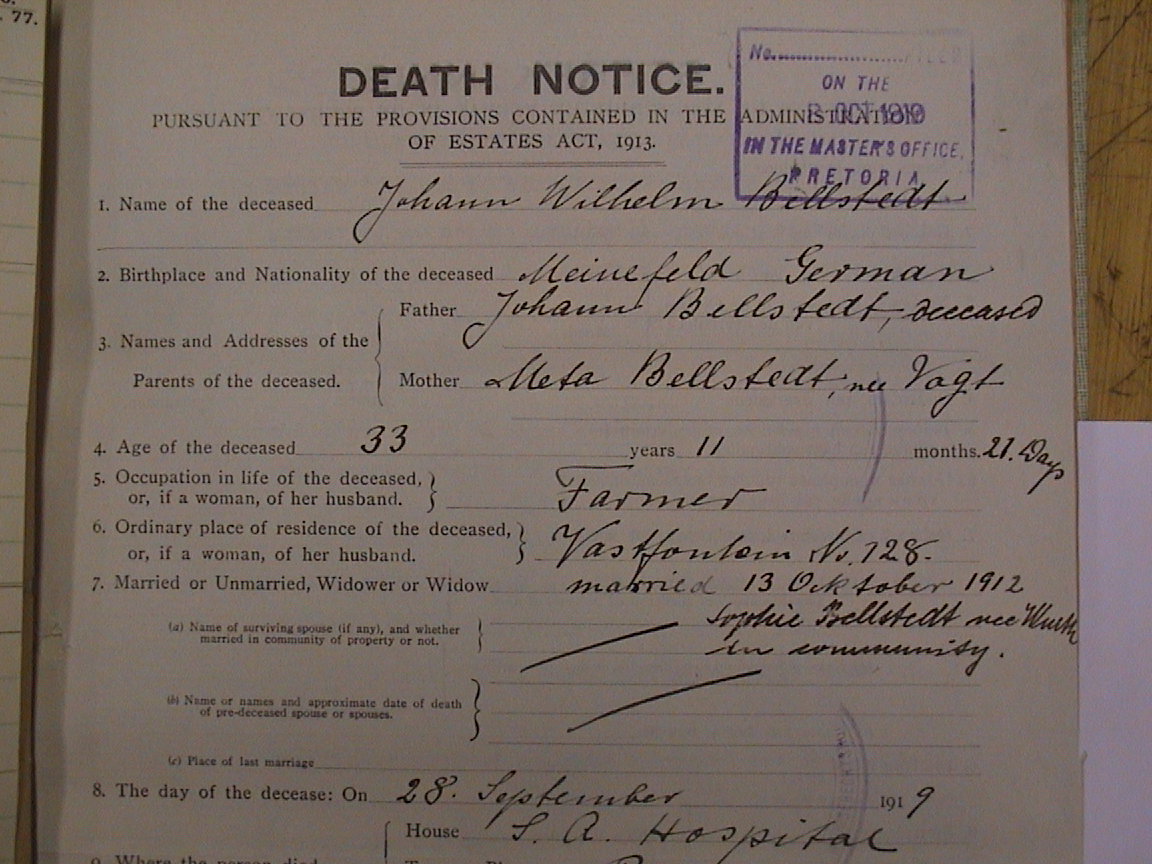 77.
No.
DEATH NOTICE.
ON THE
OCT 1919
PURSUANT TO THE PROVISIONS CONTAINED IN THE ADMINISTRATION
OF ESTATES ACT, 1913.
IN THE MASTER'S OFFICE,
PRETORIA
1. Name of the deceased Johann Wilhelm Bellstedt
2. Birthplace and Nationality of the deceased Meinefeld German
Father Johann Bellstedt, deceased
3. Names and Addresses of the
Parents of the deceased.
Mother Meta Bellstedt, nee Vagt
4. Age of the deceased 33 years 11 months. 21. Days
5. Occupation in life of the deceased,
or, if a woman, of her husband. Farmer
6. Ordinary place of residence of the deceased,
or, if a woman, of her husband. Vastfontein No. 728.
7. Married or Unmarried, Widower or Widow married 13 Oktober 1912
(a) Name of surviving spouse (if any), and whether
married in community of property or not.
Sophie Bellstedt nee
in community.
(b) Name or names and approximate date of death
of pre-deceased spouse or spouses.
(c) Place of last marriage
8. The day of the decease: On 28. September 1919
House S. A. Hospital
9. Where the person died